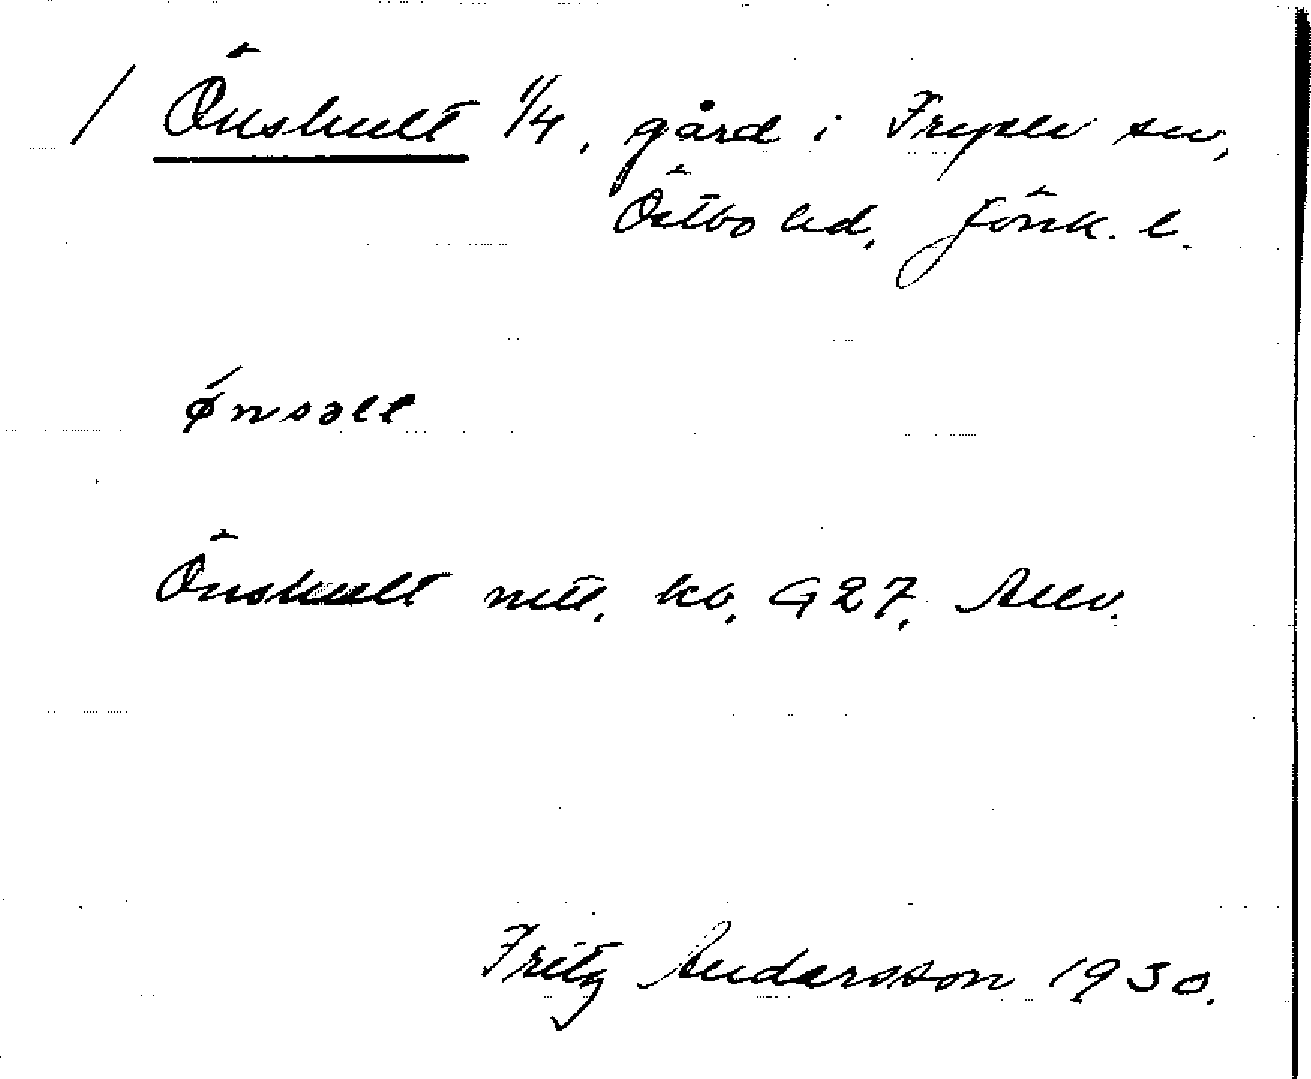 / Önskult 1/4, gård i Fryele sn,
Östbo hd, Jönk. l.
ǿnsəlt
Önskult mtl. kb, G27,
Fritz Andersson 1930.